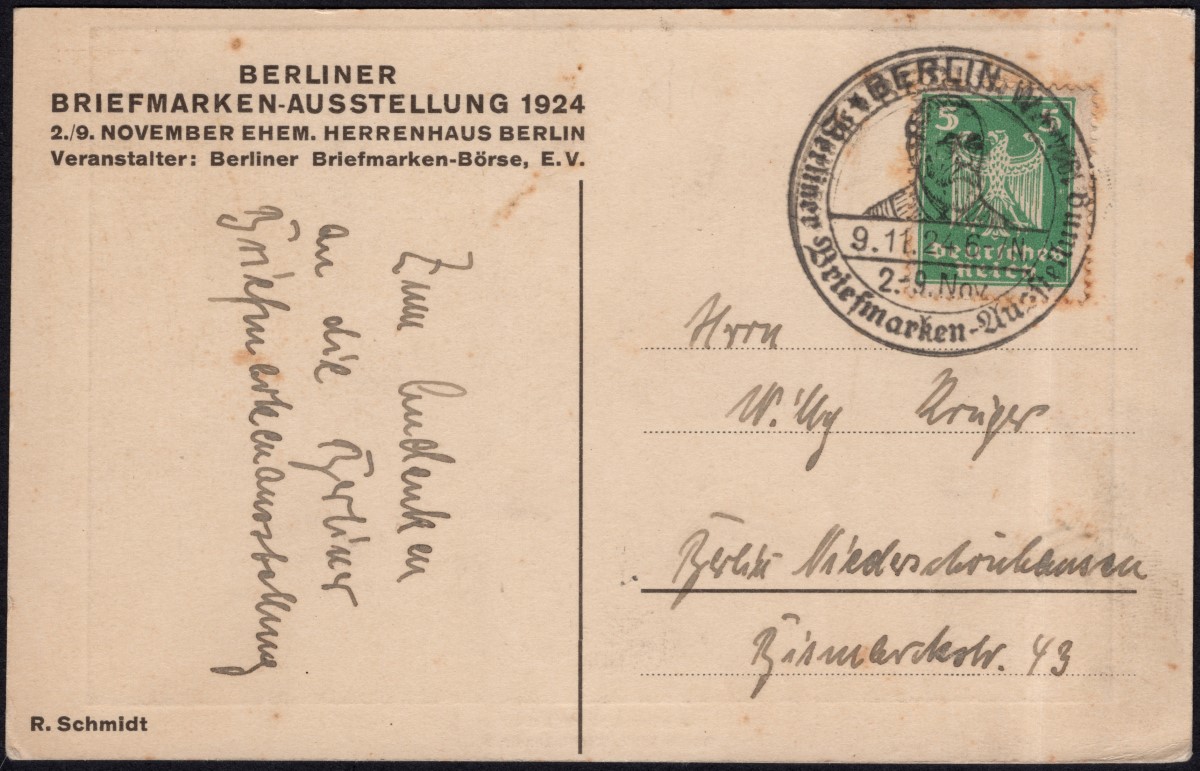 BERLINER
BRIEFMARKEN-AUSSTELLUNG 1924
2./9. NOVEMBER EHEM. HERRENHAUS BERLIN
Veranstalter: Berliner Briefmarken-Börse, E.V.
Zum Andenken
an die Berliner
Briefmarkenausstellung
R. Schmidt
BERLIN W
Berliner Briefmarken-Ausstellung
9.11.24.6 N
2.-9. Nov.
5 5
Deutsches
Reich
Herrn
Willy Krüger
Berlin Niederschönhausen
Bismarckstr. 43